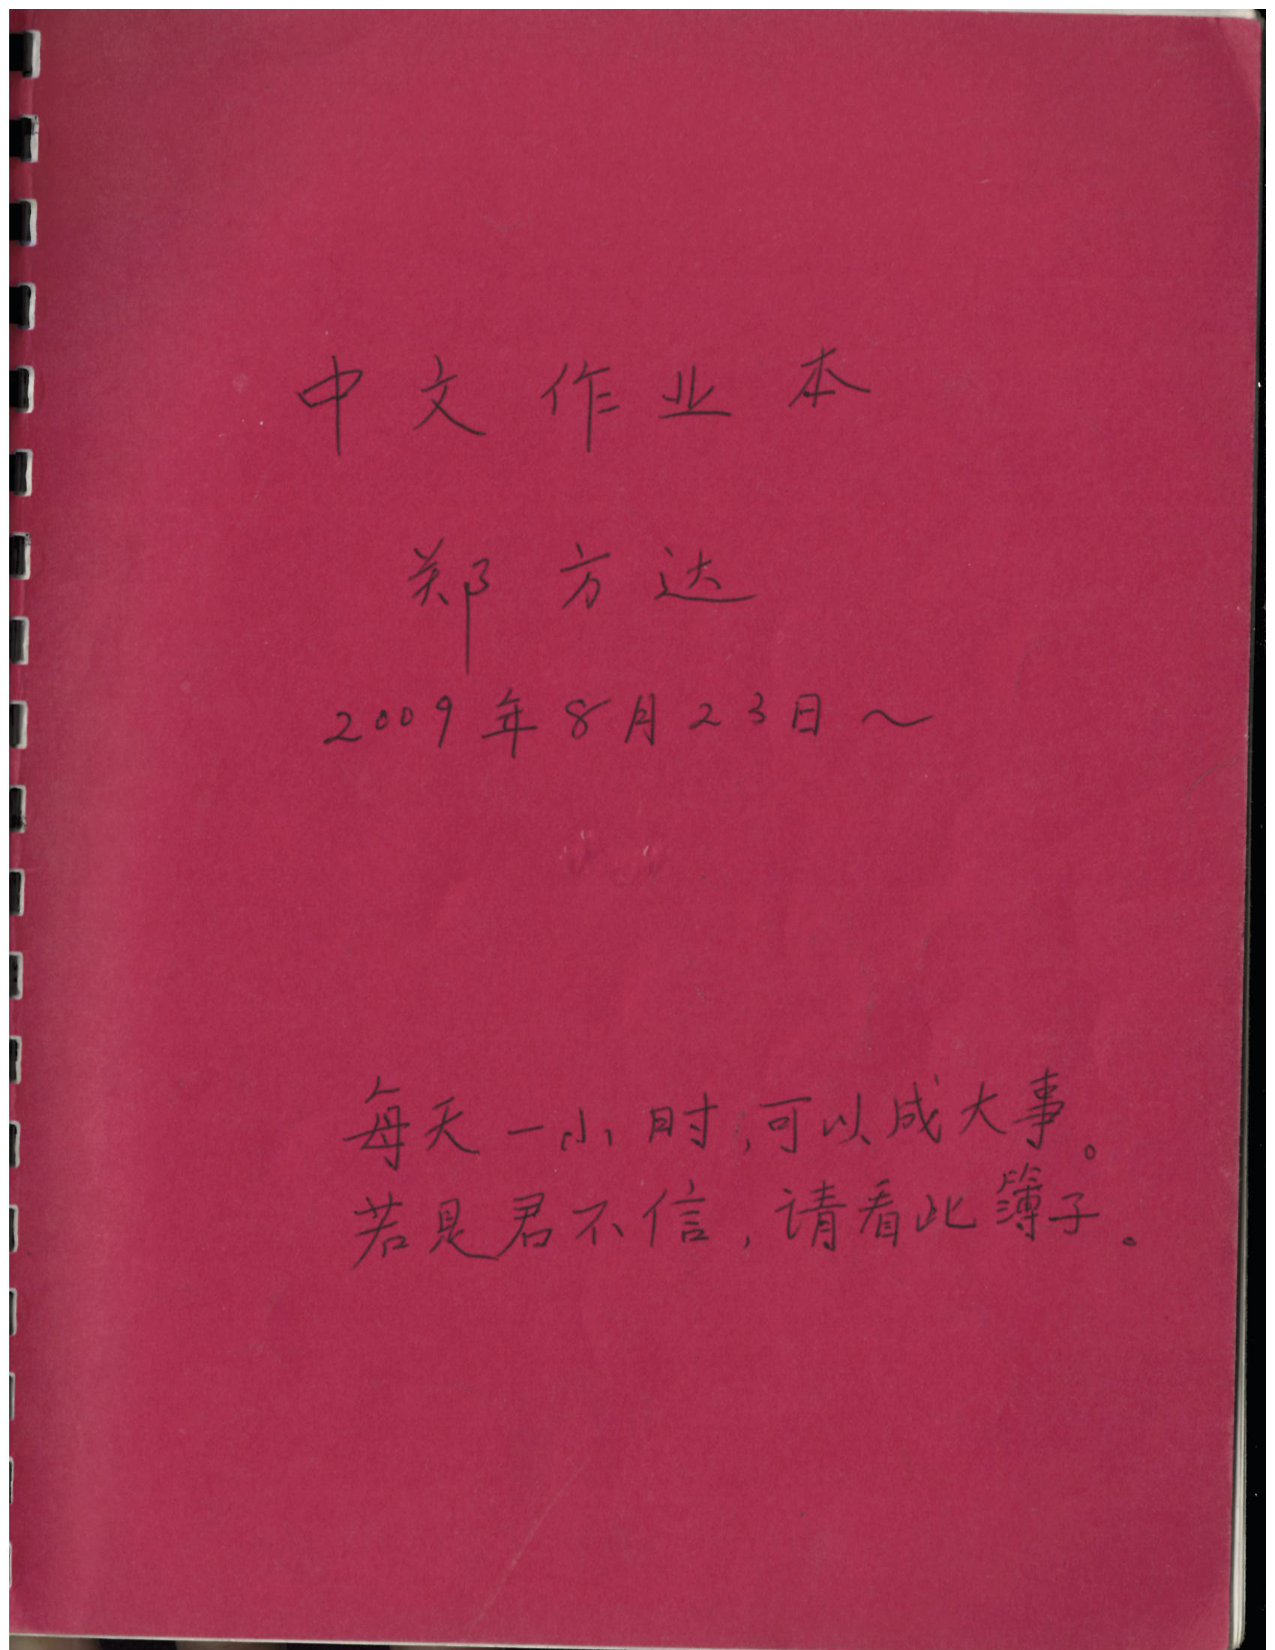 中文作业本
郑方达
2009年8月23日～
每天一小时,可以成大事。
若是君不信,请看此簿子。